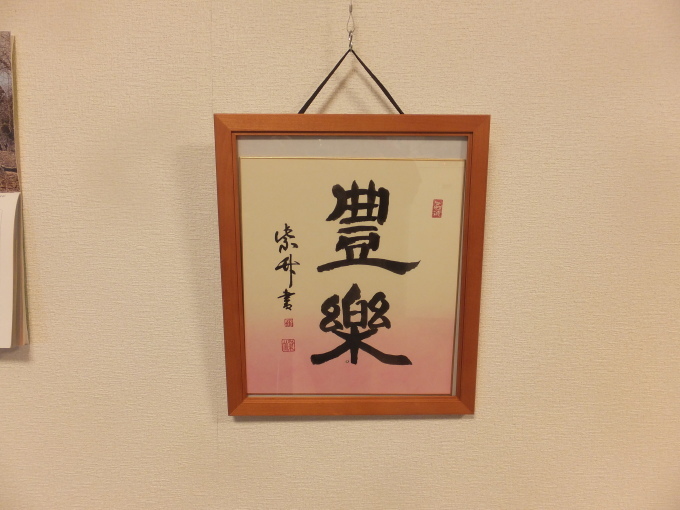 豊樂
紫舟書